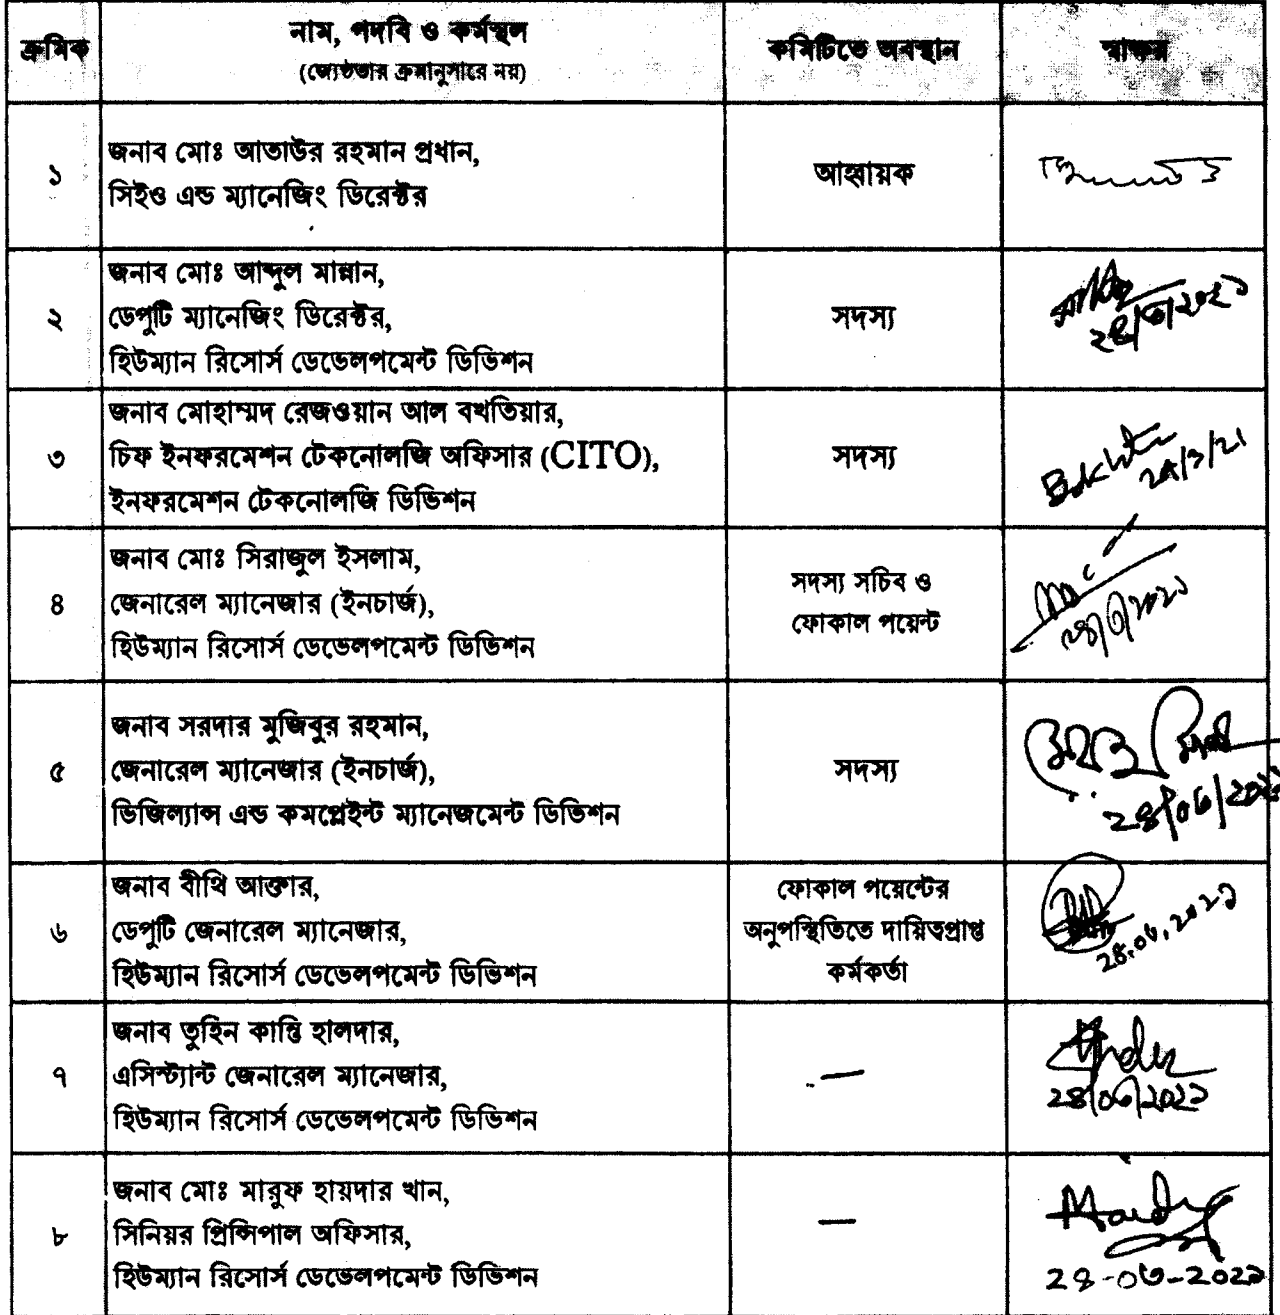 ক্রমিক
নাম, পদবি ও কর্মস্থল
(জ্যেষ্ঠতার ক্রমানুসারে নয়)
কমিটিতে অবস্থান
স্বাক্ষর
১
জনাব মোঃ আতাউর রহমান প্রধান,
সিইও এন্ড ম্যানেজিং ডিরেক্টর
আহ্বায়ক
২
জনাব মোঃ আব্দুল মান্নান,
ডেপুটি ম্যানেজিং ডিরেক্টর,
হিউম্যান রিসোর্স ডেভেলপমেন্ট ডিভিশন
সদস্য
৩
জনাব মোহাম্মদ রেজওয়ান আল বখতিয়ার,
চিফ ইনফরমেশন টেকনোলজি অফিসার (CITO),
ইনফরমেশন টেকনোলজি ডিভিশন
সদস্য
৪
জনাব মোঃ সিরাজুল ইসলাম,
জেনারেল ম্যানেজার (ইনচার্জ),
হিউম্যান রিসোর্স ডেভেলপমেন্ট ডিভিশন
সদস্য সচিব ও
ফোকাল পয়েন্ট
৫
জনাব সরদার মুজিবুর রহমান,
জেনারেল ম্যানেজার (ইনচার্জ),
ভিজিল্যান্স এন্ড কমপ্লেইন্ট ম্যানেজমেন্ট ডিভিশন
সদস্য
৬
জনাব বীথি আক্তার,
ডেপুটি জেনারেল ম্যানেজার,
হিউম্যান রিসোর্স ডেভেলপমেন্ট ডিভিশন
ফোকাল পয়েন্টের
অনুপস্থিতিতে দায়িত্বপ্রাপ্ত
কর্মকর্তা
২৪.০৬.২০২১
৭
জনাব তুহিন কান্তি হালদার,
এসিস্ট্যান্ট জেনারেল ম্যানেজার,
হিউম্যান রিসোর্স ডেভেলপমেন্ট ডিভিশন
—
২৪/০৬/২০২১
৮
জনাব মোঃ মারুফ হায়দার খান,
সিনিয়র প্রিন্সিপাল অফিসার,
হিউম্যান রিসোর্স ডেভেলপমেন্ট ডিভিশন
—
২৪-০৬-২০২১